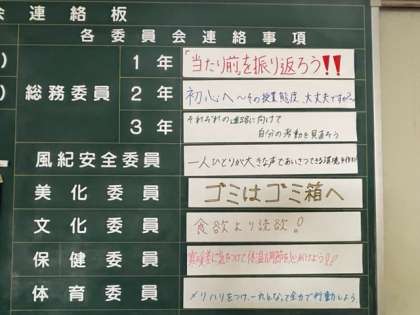 会連絡板
各委員会連絡事項
総務委員
1年 「当たり前」を振り返ろう!!
2年 初心へ〜その授業態度、大丈夫ですか?〜
3年 それぞれの進路に向けて
自分の言動を見直そう
風紀安全委員 一人ひとりが大きな声であいさつできる環境を作ろう
美化委員 ゴミはゴミ箱へ
文化委員 食欲より読欲!
保健委員 気をつけて体温調節を心がけよう!!
体育委員 メリハリをつけ、一人となって全力で行動しよう